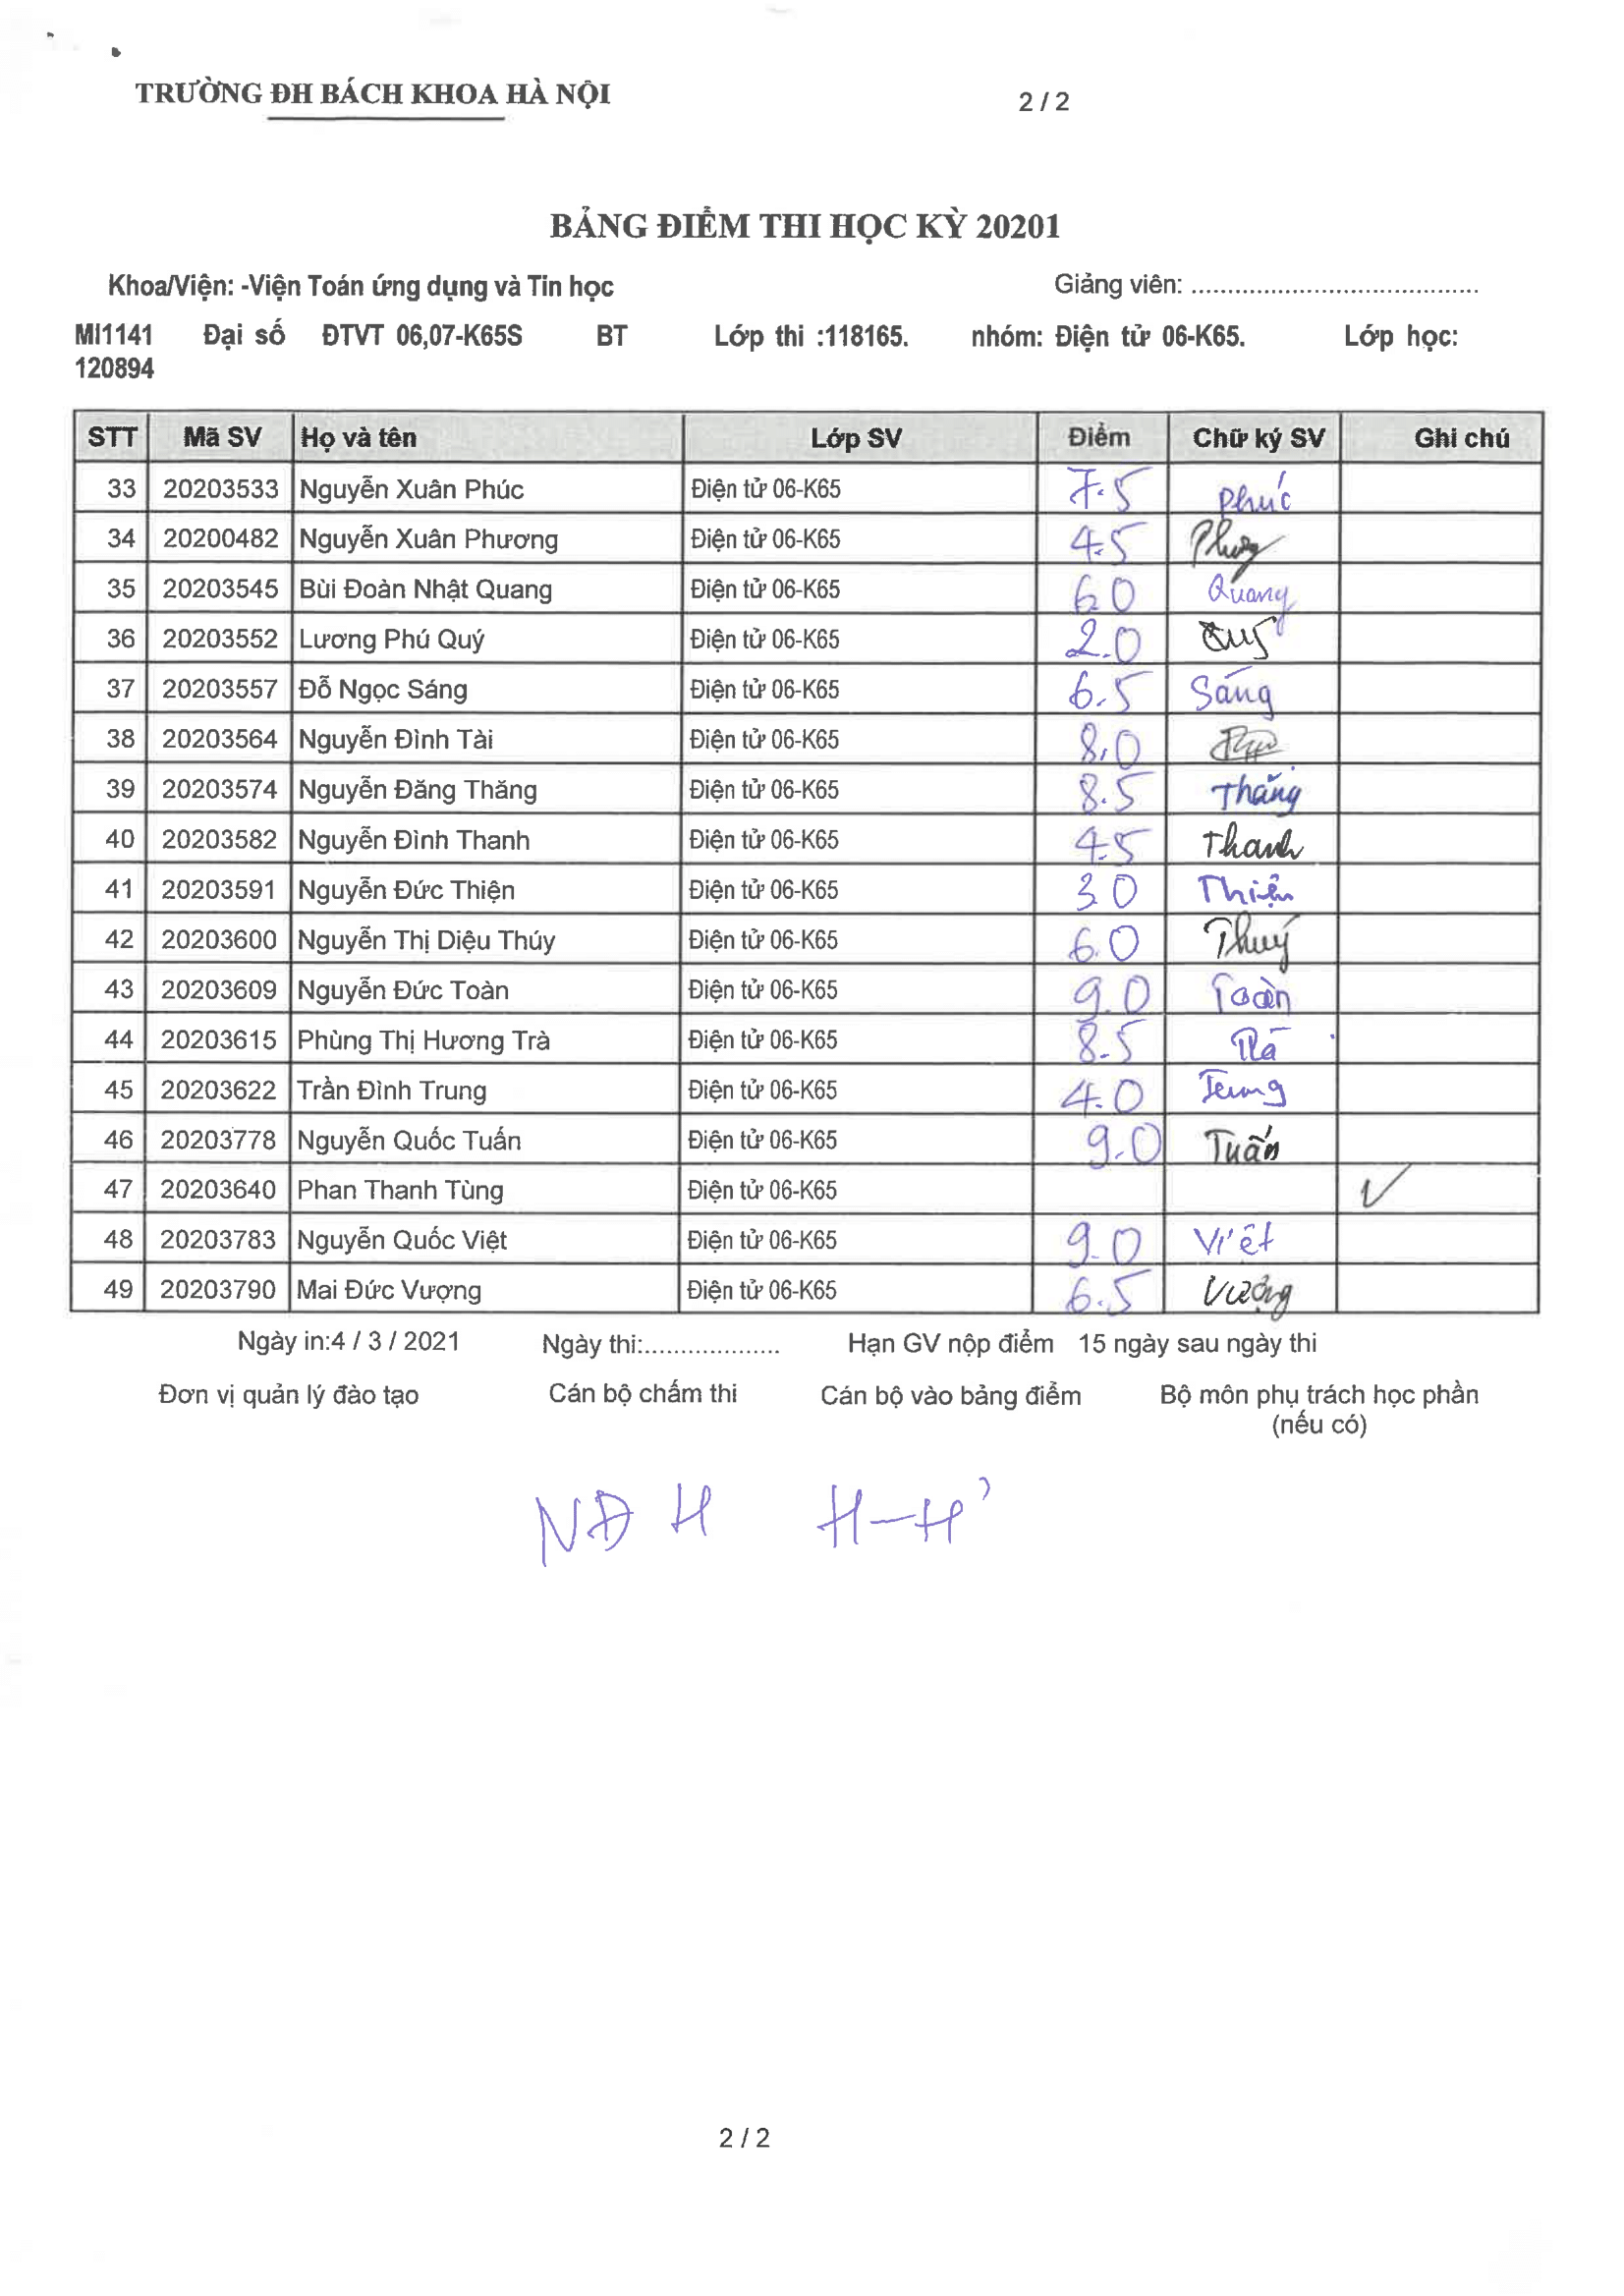 TRƯỜNG ĐH BÁCH KHOA HÀ NỘI 2 / 2
BẢNG ĐIỂM THI HỌC KỲ 20201
Khoa/Viện: -Viện Toán ứng dụng và Tin học Giảng viên: .......................................
MI1141 Đại số ĐTVT 06,07-K65S BT Lớp thi :118165. nhóm: Điện tử 06-K65. Lớp học:
120894
STT Mã SV Họ và tên Lớp SV Điểm Chữ ký SV Ghi chú
33 20203533 Nguyễn Xuân Phúc Điện tử 06-K65 7.5 Phúc
34 20200482 Nguyễn Xuân Phương Điện tử 06-K65 4.5 Phương
35 20203545 Bùi Đoàn Nhật Quang Điện tử 06-K65 6.0 Quang
36 20203552 Lương Phú Quý Điện tử 06-K65 2.0 Quý
37 20203557 Đỗ Ngọc Sáng Điện tử 06-K65 6.5 Sáng
38 20203564 Nguyễn Đình Tài Điện tử 06-K65 8.0
39 20203574 Nguyễn Đăng Thăng Điện tử 06-K65 8.5 Thăng
40 20203582 Nguyễn Đình Thanh Điện tử 06-K65 4.5 Thanh
41 20203591 Nguyễn Đức Thiện Điện tử 06-K65 3.0 Thiện
42 20203600 Nguyễn Thị Diệu Thúy Điện tử 06-K65 6.0 Thuý
43 20203609 Nguyễn Đức Toàn Điện tử 06-K65 9.0 Toàn
44 20203615 Phùng Thị Hương Trà Điện tử 06-K65 8.5 Trà
45 20203622 Trần Đình Trung Điện tử 06-K65 4.0 Trung
46 20203778 Nguyễn Quốc Tuấn Điện tử 06-K65 9.0 Tuấn
47 20203640 Phan Thanh Tùng Điện tử 06-K65 ✓
48 20203783 Nguyễn Quốc Việt Điện tử 06-K65 9.0 Việt
49 20203790 Mai Đức Vượng Điện tử 06-K65 6.5 Vượng
Ngày in:4 / 3 / 2021 Ngày thi:................... Hạn GV nộp điểm 15 ngày sau ngày thi
Đơn vị quản lý đào tạo Cán bộ chấm thi Cán bộ vào bảng điểm Bộ môn phụ trách học phần
(nếu có)
NĐ H H-H'
2 / 2